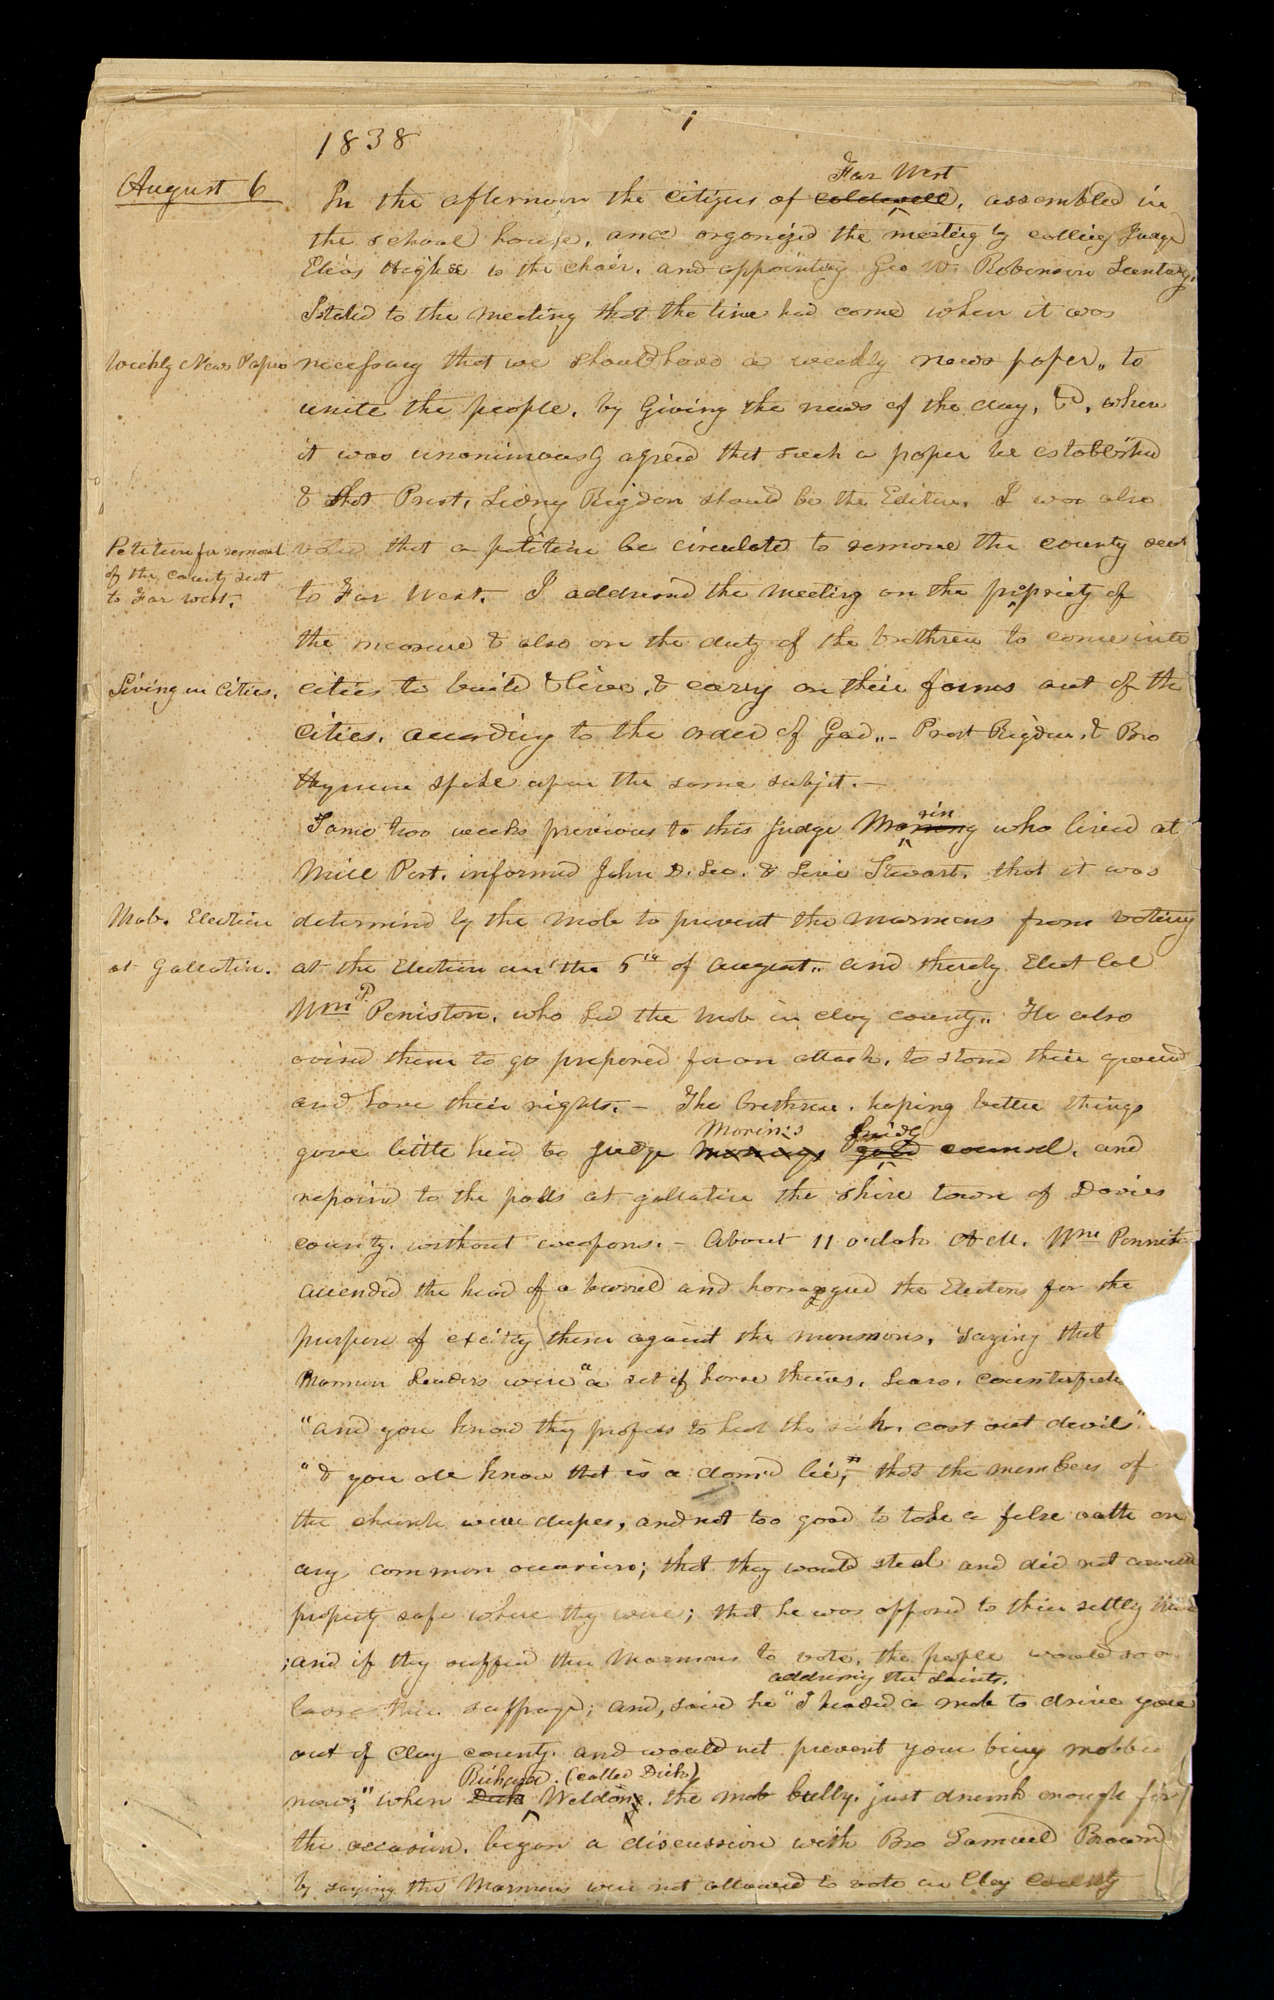 1
1838
August 6
Far West
In the afternoon the citizens of coldwell, assembled in
the school house, and organized the meeting by calling Judge
Elias Higbee to the chair. and appointing Geo W. Robinson Secretary.
I stated to the meeting that the time had come when it was
Weekly News Paper
necessary that we should have a weekly news paper,, to
unite the people, by Giving the news of the day, &c, when
it was unanimously agreed that such a paper be established
& that Prest. Sidny Rigdon should be the Editor. I was also
Petition for removal of the county seat to Far West.
voted that a petition be circulated to remove the county seat
to Far West. I addressed the meeting on the propriety of
the measure & also on the duty of the brethren to come into
Living in Cities.
cities to build & live, & carry on their farms out of the
cities. according to the order of God,,- Prest Rigdon, & Bro
Hyrum spoke upon the same subjet.—
rin
Some two weeks previous to this Judge Morning who lived at
Mill Port. informed John D. Lee. & Levi Stewart. that it was
Mob. Election
determind by the Mob to prevent the mormons from voting
at Gallatin.
at the Election on the 6th of august,, and therely Elect Col
Wm P. Peniston, who led the Mob in clay county,, He also
avised them to go prepared for an attack, to stand their ground
and have their rights.— The brethren, hoping better things
Morin's friendly
gave little heed to Judge Mornings good counsel, and
repaird to the polls at gallatin the shire town of Davies
county. without weapons.— About 11 o'clock A M. Wm Pennist
assended the head of a barrel and harrangued the Electors for the
purpose of exciting them against the mormons, saying that
Mormon Leaders were "a set of horse thieves, liars, counterfeite
"and you know they profess to heal the sick, cast out devil"
"& you all know that is a damd lie;" that the members of
the church were dupes, and not too good to take a false oath on
any common occasion; that they would steal and did not
property safe where they were; that he was opposed to their settling
; and if they suffered the Mormons to vote, the people would soon
addressing the Saints.
loose their suffrage; and, said he "I headed a mob to drive you
out of Clay county. and would not prevent your being mobbed
Richard. (called Dick)
now;" when Dick Weldone, the mob bully, just drunk enough for
the occasion, began a discussion with Bro Samuel Brown
by saying the Mormons were not allowed to vote in Clay County